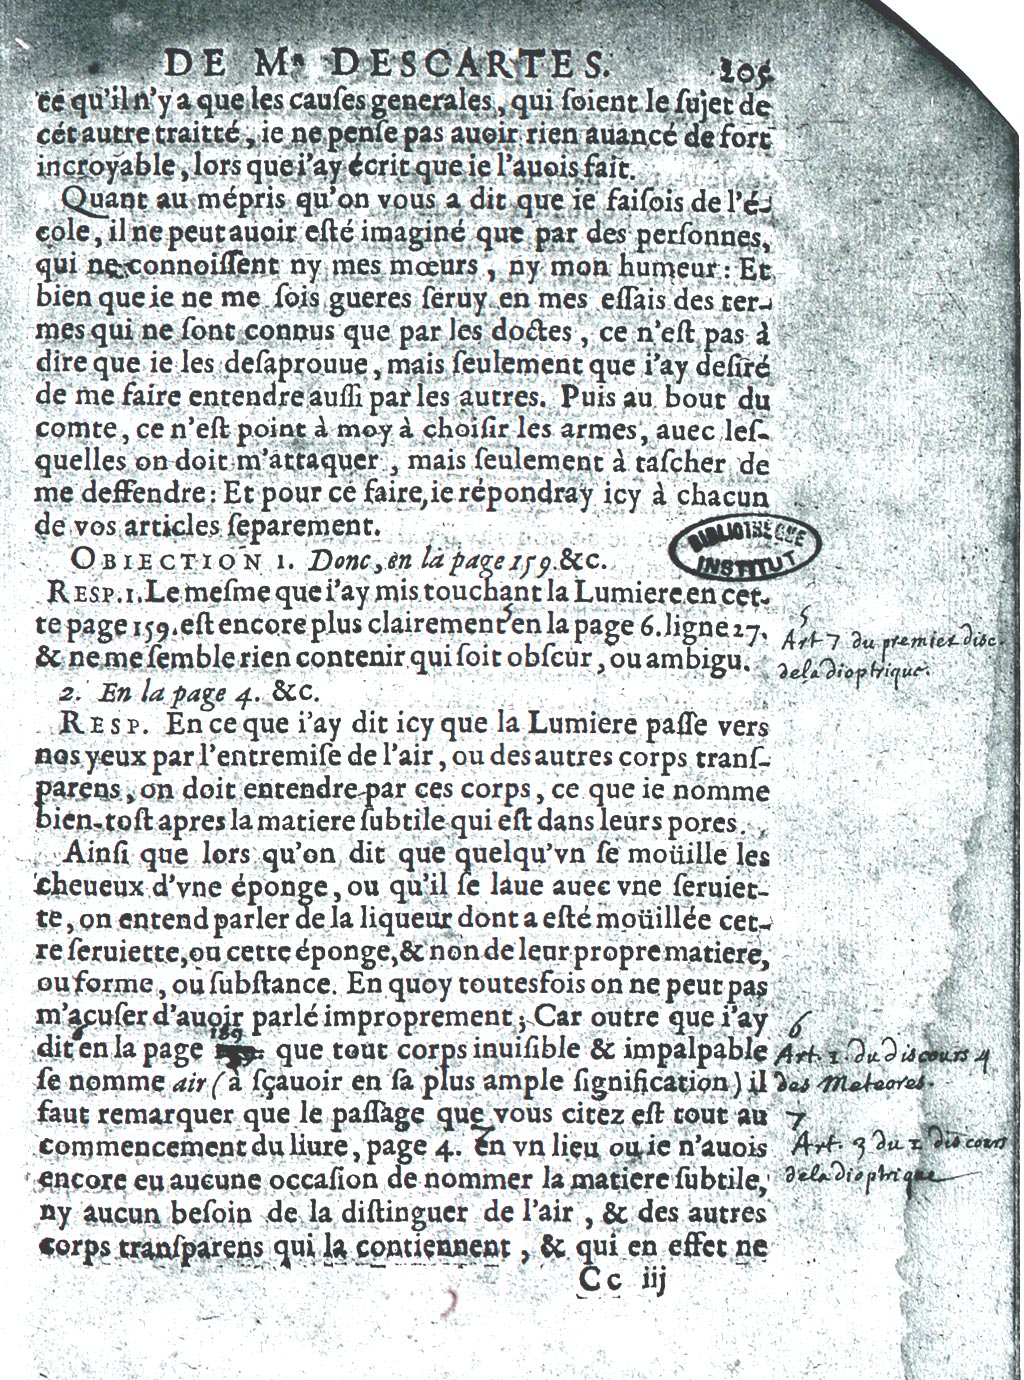 DE Mʀ DESCARTES. 205
ce qu'il n'y a que les cauſes generales, qui ſoient le ſujet de
cét autre traitté, ie ne penſe pas auoir rien auancé de fort
incroyable, lors que i'ay écrit que ie l'auois fait.
Quant au mépris qu'on vous a dit que ie faiſois de l'é-
cole, il ne peut auoir eſté imaginé que par des perſonnes,
qui ne connoiſſent ny mes mœurs, ny mon humeur: Et
bien que ie ne me ſois gueres ſeruy en mes eſſais des ter-
mes qui ne ſont connus que par les doctes, ce n'eſt pas à
dire que ie les deſaprouue, mais ſeulement que i'ay deſiré
de me faire entendre auſſi par les autres. Puis au bout du
comte, ce n'eſt point à moy à choiſir les armes, auec leſ-
quelles on doit m'attaquer, mais ſeulement à taſcher de
me deffendre: Et pour ce faire, ie répondray icy à chacun
de vos articles ſeparement.
BIBLIOTHÈQUE
INSTITUT
OBIECTION 1. Donc, en la page 159. &c.
RESP. 1. Le meſme que i'ay mis touchant la Lumiere en cet-
te page 159. eſt encore plus clairement 5 en la page 6. ligne 27.
5 Art 7 du premier disc.
& ne me ſemble rien contenir qui ſoit obſcur, ou ambigu.
de la dioptrique.
2. En la page 4. &c.
RESP. En ce que i'ay dit icy que la Lumiere paſſe vers
nos yeux par l'entremiſe de l'air, ou des autres corps tranſ-
parens, on doit entendre par ces corps, ce que ie nomme
bien-toſt apres la matiere ſubtile qui eſt dans leurs pores.
Ainſi que lors qu'on dit que quelqu'vn ſe moüille les
cheueux d'vne éponge, ou qu'il ſe laue auec vne ſeruiet-
te, on entend parler de la liqueur dont a eſté moüillée cet-
te ſeruiette, ou cette éponge, & non de leur propre matiere,
ou forme, ou ſubſtance. En quoy toutesfois on ne peut pas
m'acuſer d'auoir parlé improprement; Car outre que i'ay
dit 6 en la page 189 que tout corps inuiſible & impalpable
6 Art. 1. du discours 4
ſe nomme air (à ſçauoir en ſa plus ample ſignification) il
des Meteores.
faut remarquer que le paſſage que vous citez eſt tout au
commencement du liure, page 4. 7 en vn lieu ou ie n'auois
7 Art. 3 du 1 discours
encore eu aucune occaſion de nommer la matiere ſubtile,
de la dioptrique
ny aucun beſoin de la diſtinguer de l'air, & des autres
corps tranſparens qui la contiennent, & qui en effet ne
Cc iij